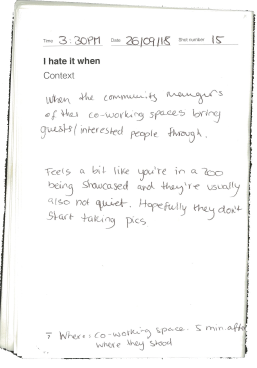 Time 3:30PM Date 26/09/18 Shot number 15
I hate it when
Context
When the community managers
of the co-working spaces bring
guests/interested people through.
Feels a bit like you're in a zoo
being showcased and they're usually
also not quiet. Hopefully they don't
start taking pics
Where: co-working space. 5 min after
where they stood